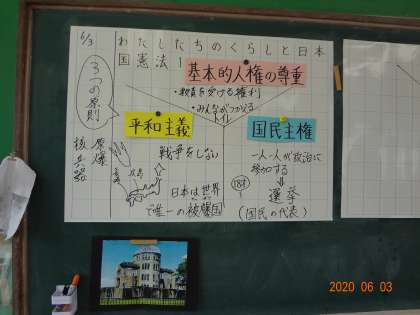 6/3
わたしたちのくらしと日本
国憲法1
3つの原則
基本的人権の尊重
・教育を受ける権利
・みんながつかえる
トイレ
平和主義
戦争をしない
原爆
核兵器
広島
長崎
日本は世界
で唯一の被爆国
国民主権
一人一人が政治に
参加する
18才
選挙
(国民の代表)
2020 06 03